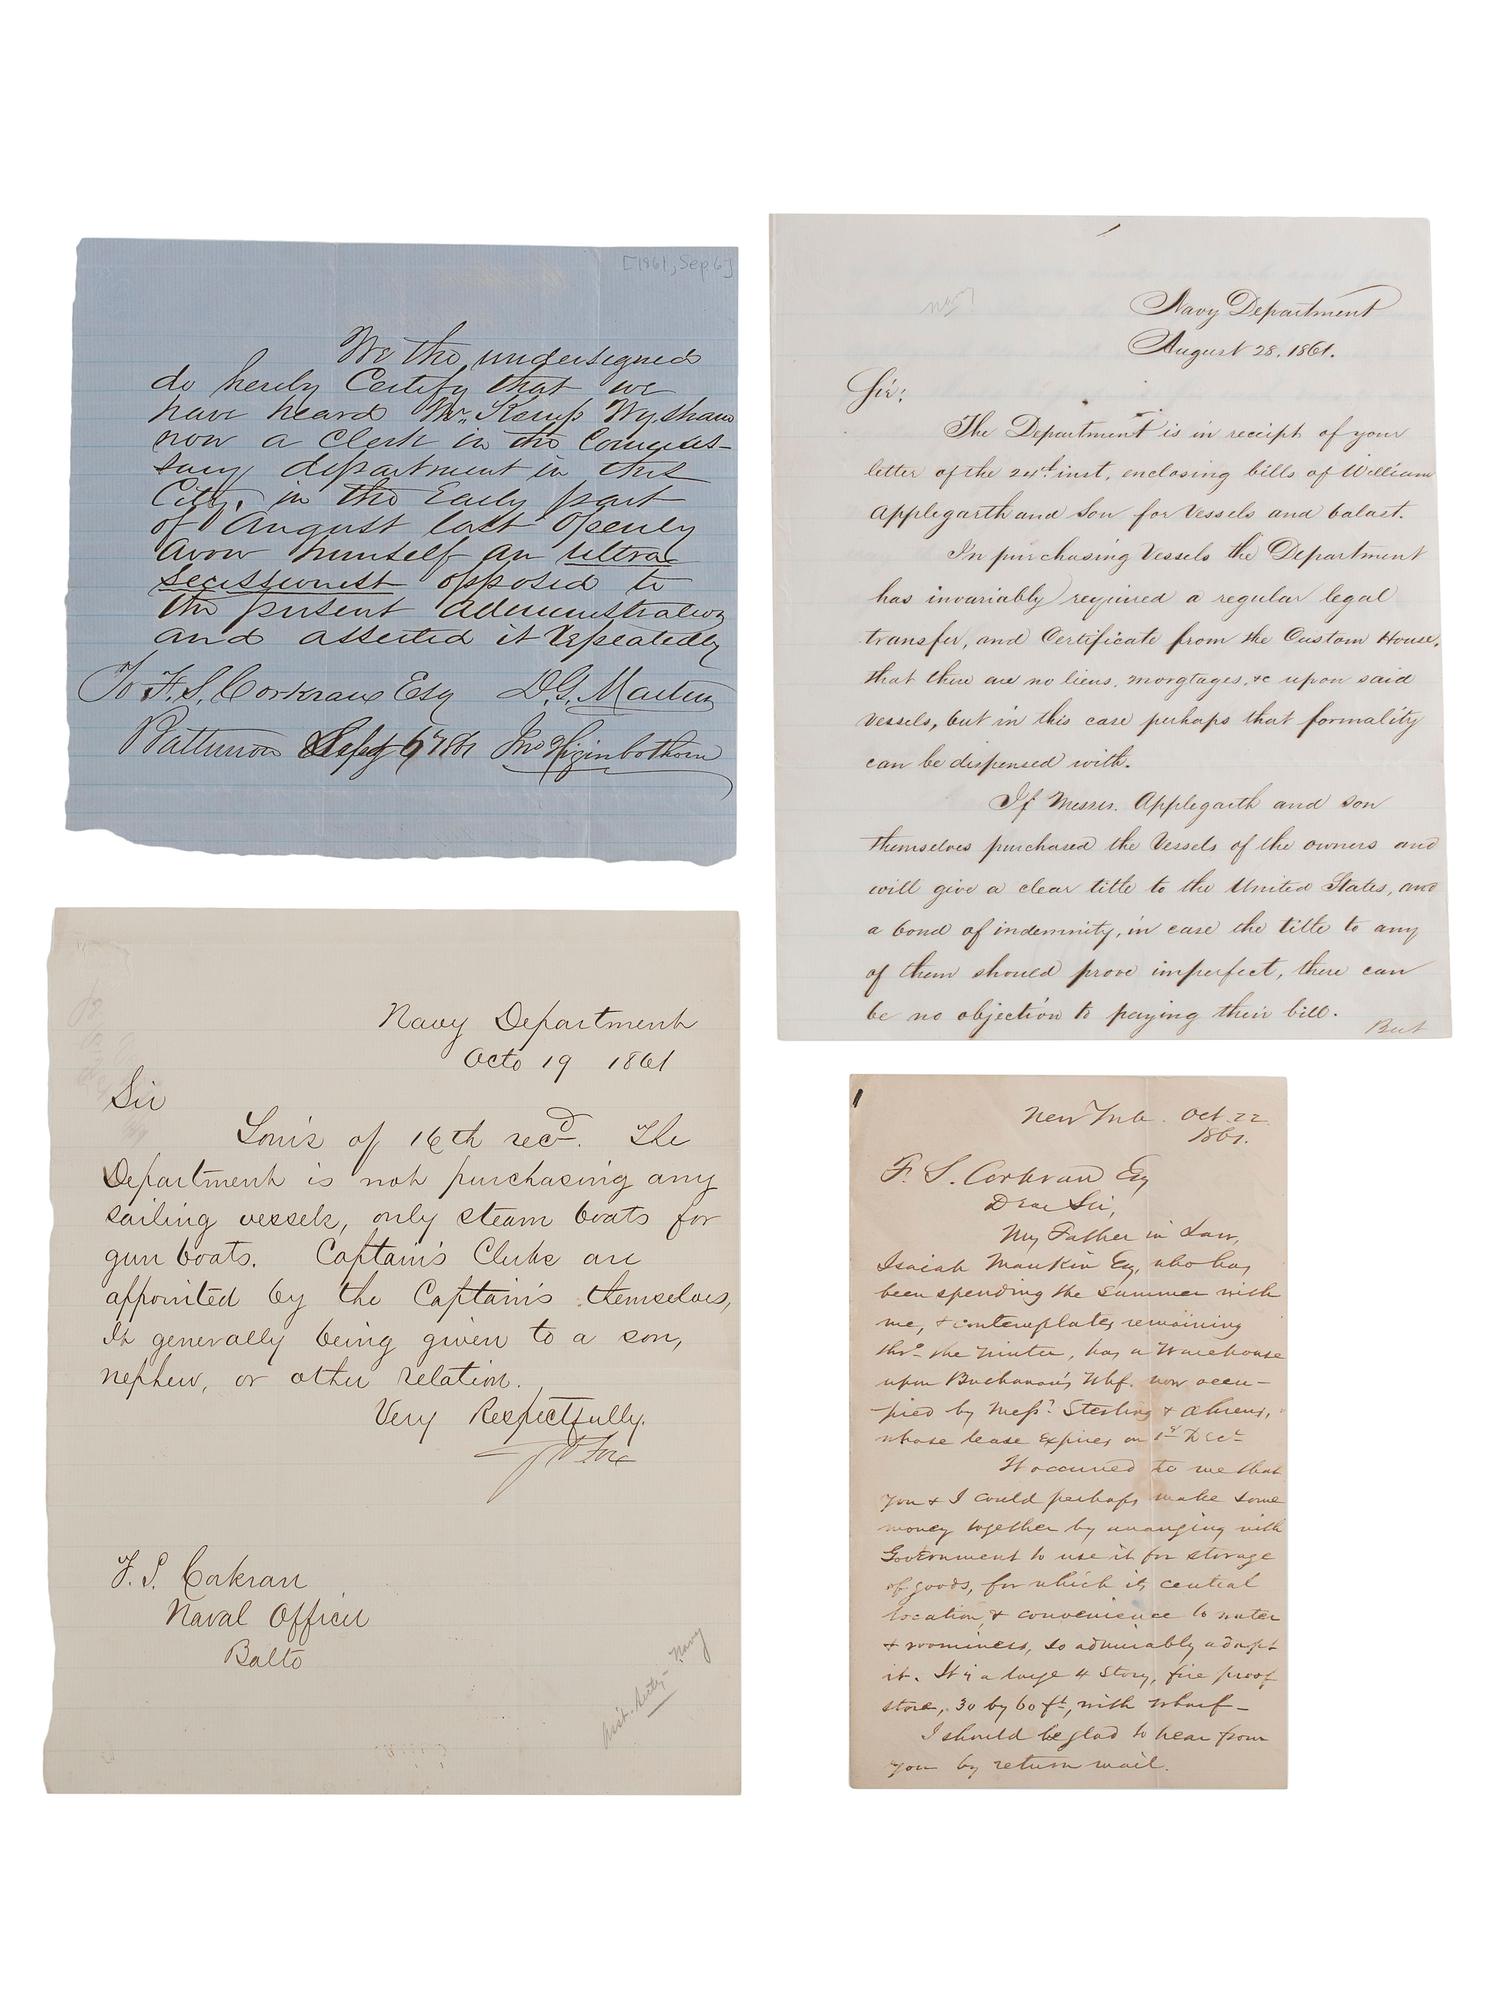 [1861, Sep. 6]
We the undersigned
do hereby Certify that we
have heard Mr. Kemp Wysham
now a Clerk in the Commis-
sary department in this
City, in the Early part
of August last Openly
avow himself an ultra
secessionist opposed to
the present administration
and asserted it repeatedly
To F. S. Corkran Esq D. G. Martin
Baltimore Sept 6th 1861 Jno Higinbothom
Navy Department
August 28, 1861.
Sir:
The Department is in receipt of your
letter of the 24th inst, enclosing bills of William
Applegarth and Son for Vessels and balast.
In purchasing Vessels the Department
has invariably required a regular legal
transfer, and Certificate from the Custom House,
that there are no liens, morgtages, &c upon said
vessels, but in this case perhaps that formality
can be dispensed with.
If Messrs. Applegarth and son
themselves purchased the Vessels of the owners and
will give a clear title to the United States, and
a bond of indemnity, in case the title to any
of them should prove imperfect, there can
be no objection to paying their bill.
But
Navy Department
Octo 19 1861
Sir
Your's of 16th recd. The
Department is not purchasing any
sailing vessels, only steam boats for
gun boats. Captain's Clerks are
appointed by the Captain's themselves,
it generally being given to a son,
nephew, or other relation.
Very Respectfully.
G V Fox
F. S. Corkran
Naval Officer
Balto
Asst. Secty - Navy
New York. Oct. 22
1861.
F. S. Corkran Esq
Dear Sir,
My Father in Law,
Isaiah Mankin Esq, who has
been spending the Summer with
me, & contemplates remaining
thro the Winter, has a Warehouse
upon Buchanan's Whf. now occu-
pied by Messrs Sterling & Ahrens,
whose lease expires on 1st Decr
It occurred to me that
you & I could perhaps make some
money together by arranging with
Government to use it for storage
of goods, for which its central
location, & convenience to water
& roominess, so admirably adapt
it. It is a large 4 Story, fire proof
store, 30 by 60 ft, with wharf -
I should be glad to hear from
you by return mail.